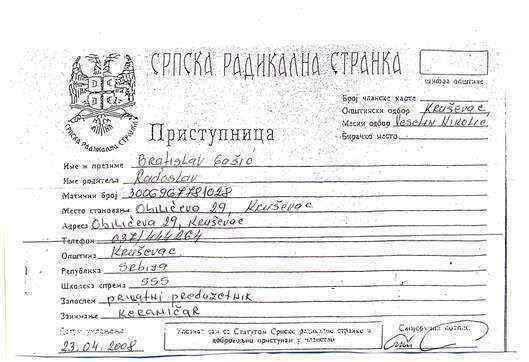 СРПСКА РАДИКАЛНА СТРАНКА
СРПСКА РАДИКАЛНА СТРАНКА
шифра општине
Приступница
Број чланске карте
Општински одбор Kruševac
Месни одбор Veselin Nikolić
Бирачко место
Име и презиме Bratislav Gašić
Име родитеља Radoslav
Матични број
Место становања Obilićeva 29 Kruševac
Адреса Obilićeva 29, Kruševac
Телефон
Општина Kruševac
Република Srbija
Школска спрема SSS
Запослен privatni preduzetnik
Занимање keramičar
23.04.2008
Упознат сам са Статутом Српске радикалне странке и
добровољно приступам у чланство